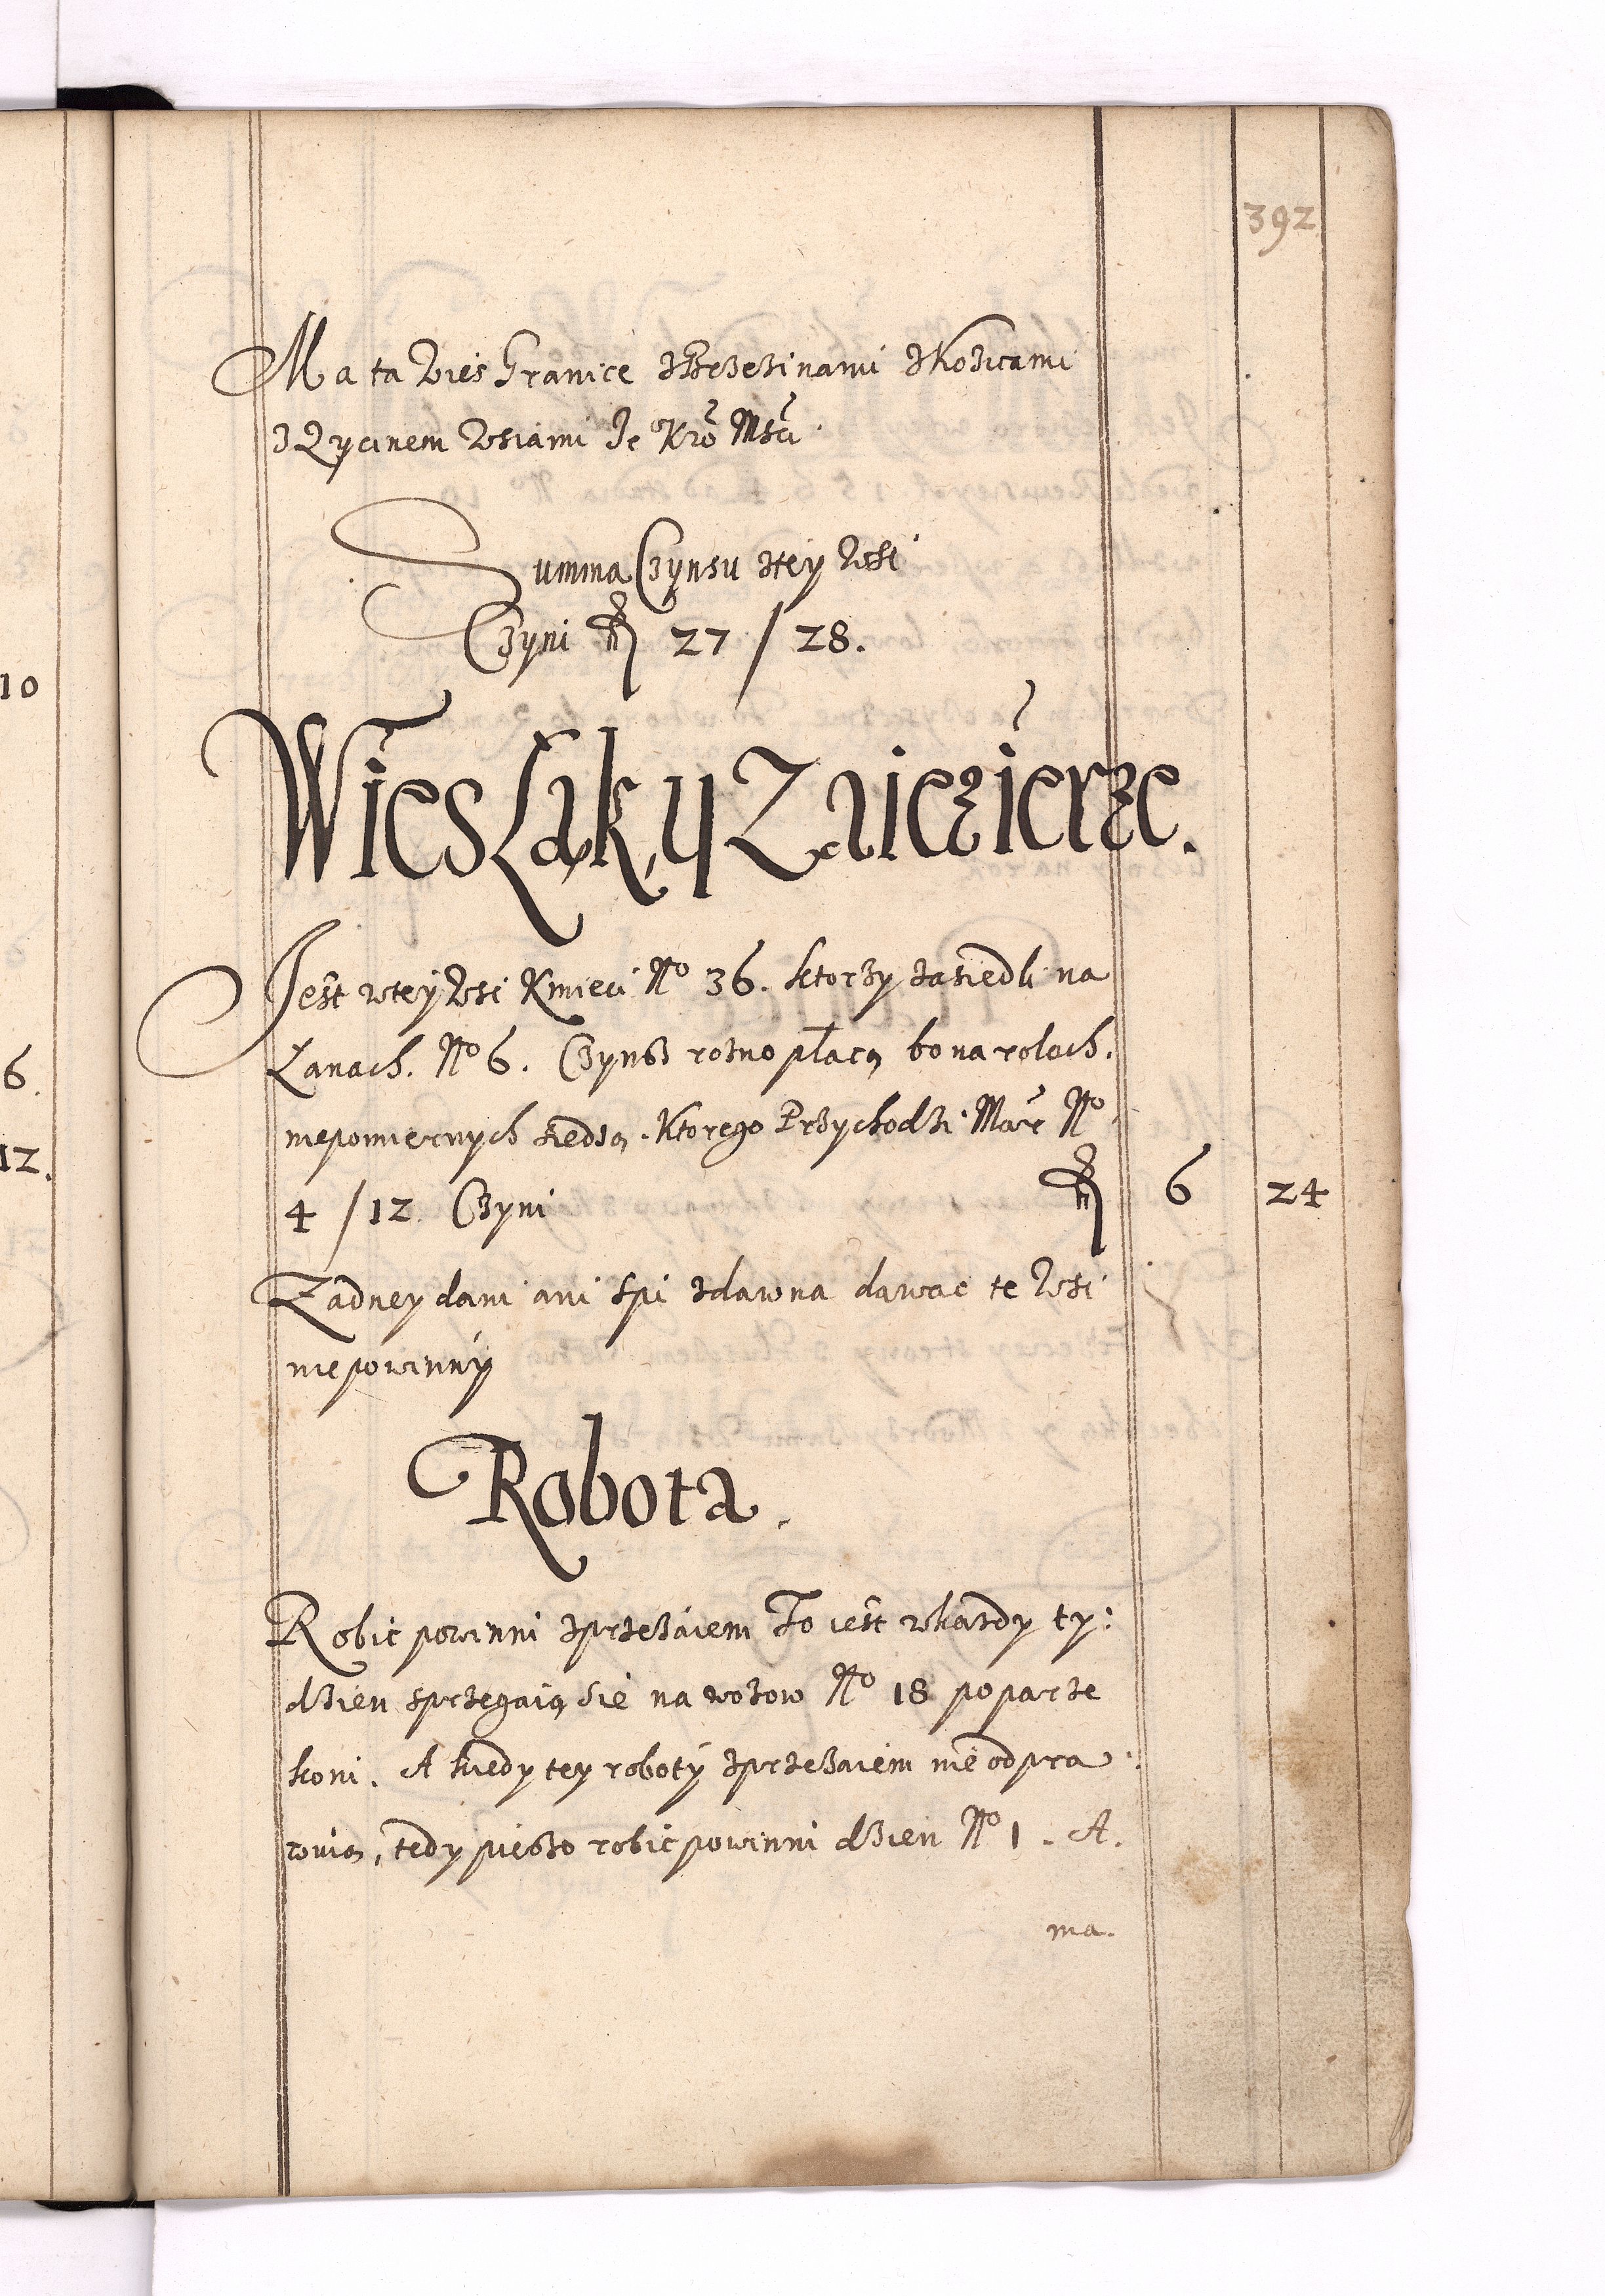 392
Ma ta Wies Granice zBrzezinami zKozicami
z Rycinem Wsiami Je Kro Msci
Summa Czynsu ztey Wsi
Czyni fl 27 / 28.
Wies Łąky Zaiezierze.
Jest wtey Wsi Kmieci No 36. ktorzy zasiedli na
Łanach. No 6. Czynsz rozno płacą bo na rolach.
niepomiernych siedzą. Ktorego Przychodzi Marc No
4 / 12 Czyni fl 6 24
Zadney dani ani Spi zdawna dawac te Wsi
niepowinny
Robota.
Robic powinni zprzezaiem To iest wkazdy ty:
dzien sprzegaią sie na wozow No 18 po parze
koni. A kiedy tey roboty zprzezaiem nie odpra:
wuią, tedy pieszo robic powinni dzien No 1. A.
ma.
10
6.
12.